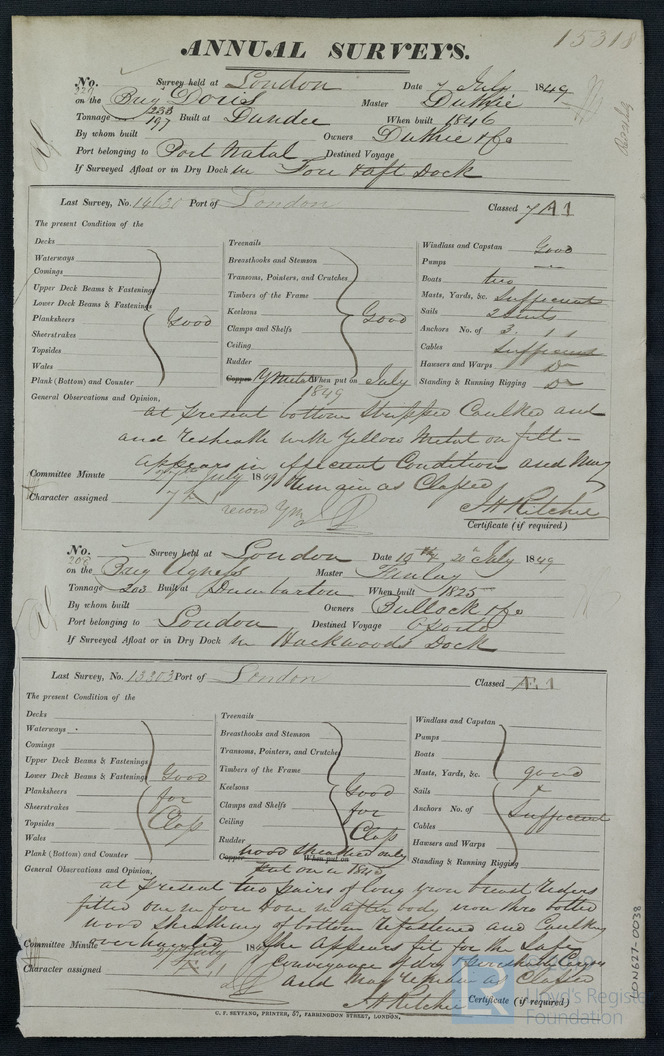 15318
ANNUAL SURVEYS.
No. Survey held at London Date 7 July 1849
on the Brig Doris Master Duthie
Tonnage 233 197 Built at Dundee When built 1846
By whom built Owners Duthie & Co
Port belonging to Port Natal Destined Voyage
If Surveyed Afloat or in Dry Dock in Fore & aft Dock
Last Survey, No. Port of London Classed 7 A1
The present Condition of the
Decks
Waterways
Comings
Upper Deck Beams & Fastenings
Lower Deck Beams & Fastenings
Planksheers Good
Sheerstrakes
Topsides
Wales
Plank (Bottom) and Counter
Treenails
Breasthooks and Stemson
Transoms, Pointers, and Crutches
Timbers of the Frame
Keelsons Good
Clamps and Shelfs
Ceiling
Rudder
Copper Y Metal When put on July
1849
Windlass and Capstan Good
Pumps
Boats two
Masts, Yards, &c. Sufficient
Sails 2 Suits
Anchors No. of 3 . 1 . 1
Cables Sufficient
Hawsers and Warps Do
Standing & Running Rigging Do
General Observations and Opinion,
at present bottom Stripped Caulked and
and resheath with Yellow Metal on felt -
appears in efficient Condition and may
Committee Minute July 1849 remain as Classed
Character assigned
record YM
J H Ritchie
Certificate (if required)
No. Survey held at London Date 10th & 20th July 1849
on the Brig Agness Master Finlay
Tonnage 203 Built at Dumbarton When built 1825
By whom built Owners Bullock & Co
Port belonging to London Destined Voyage Oporto
If Surveyed Afloat or in Dry Dock in Hackwoods Dock
Last Survey, No. 13303 Port of London Classed Æ 1
The present Condition of the
Decks
Waterways
Comings
Upper Deck Beams & Fastenings
Lower Deck Beams & Fastenings Good
Planksheers for
Sheerstrakes
Topsides Class
Wales
Plank (Bottom) and Counter
Treenails
Breasthooks and Stemson
Transoms, Pointers, and Crutches
Timbers of the Frame
Keelsons Good
Clamps and Shelfs for
Ceiling Class
Rudder
Copper wood Sheathed only When put on
put on in
Windlass and Capstan
Pumps
Boats
Masts, Yards, &c. good
Sails &
Anchors No. of Sufficient
Cables
Hawsers and Warps
Standing & Running Rigging
General Observations and Opinion,
at present two pairs of long iron breast riders
fitted one in fore & one in after body, iron thro bolted
wood Sheathing of bottom refastened and Caulking
Committee Minute overhauled July 184 She appears fit for the Safe
conveyance of dry & perishable Cargoes
Character assigned and may remain as Classed
J H Ritchie Certificate (if required)
C. F. SEYFANG, PRINTER, 57, FARRINGDON STREET, LONDON.
LON627-0038
LR
Lloyd's Register
Foundation